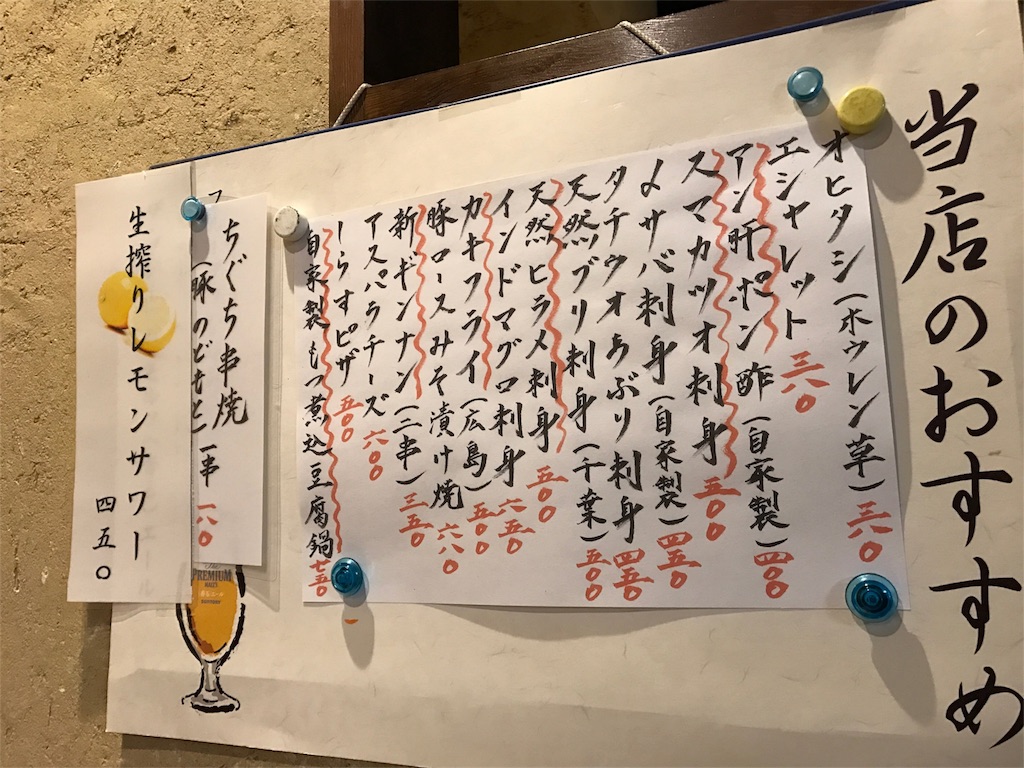 当店のおすすめ
オヒタシ(ホウレン草)三六〇
エシャレット 三六〇
アン肝ポン酢(自家製)四〇〇
スマカツオ刺身 五〇〇
〆サバ刺身(自家製)四五〇
タチウオあぶり刺身 四五〇
天然ブリ刺身(千葉)五〇〇
天然ヒラメ刺身 五〇〇
インドマグロ刺身 六五〇
カキフライ(広島)五〇〇
豚ロースみそ漬け焼 六八〇
新ギンナン(三串)三五〇
アスパラチーズ 六〇〇
しらすピザ 五〇〇
自家製もつ煮込豆腐鍋 七五〇
ちぐち串焼
(豚のどもと)一串 一八〇
生搾りレモンサワー 四五〇
The
PREMIUM
MALT'S